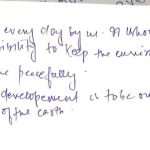 every day by us. It
ibility to keep the
e peacefully.
developement is to be ou
of the earth.